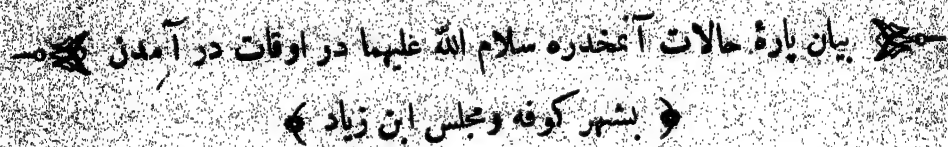 بیان پارهٔ حالات آنمخدره سلام الله علیهما در اوقات در آمدن
﴿ بشهر کوفه ومجلس ابن زیاد ﴾